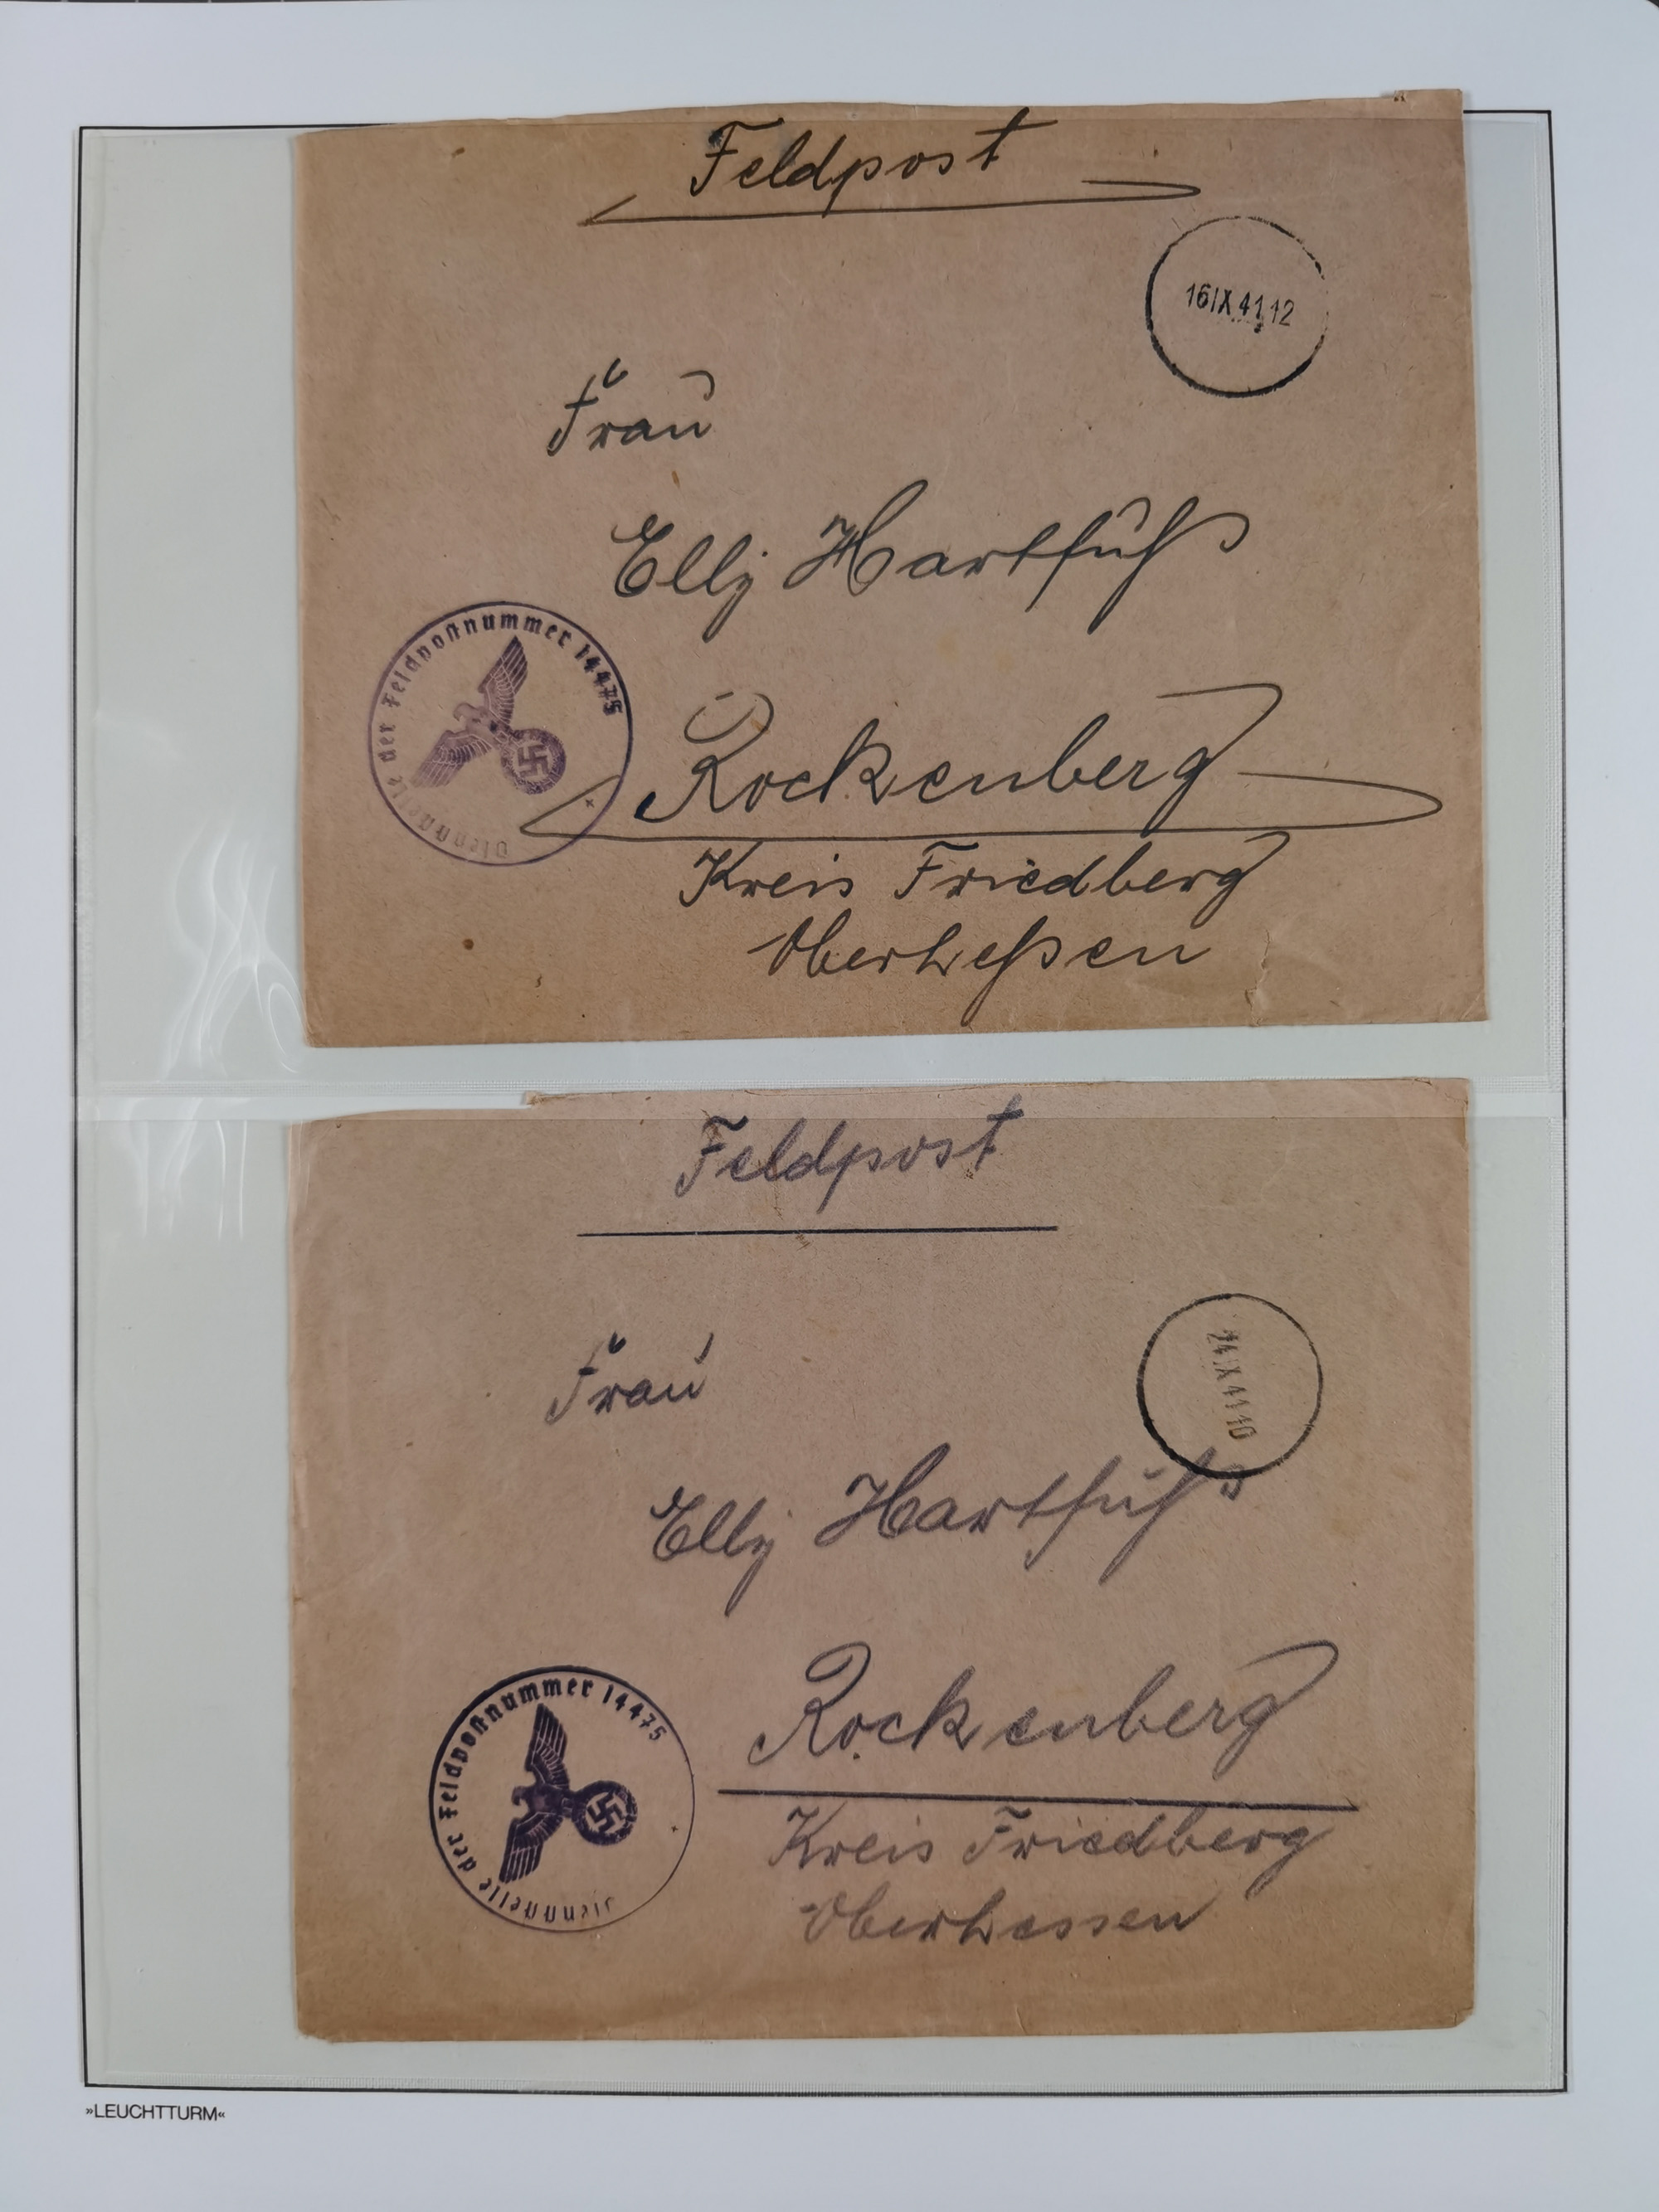 Feldpost
16 IX 41 12
Frau
Elly Hartfuß
Dienststelle der Feldpostnummer 14475
Rockenberg
Kreis Friedberg
Oberheßen
Feldpost
24 X 41 10
Frau
Elly Hartfuß
Dienststelle der Feldpostnummer 14475
Rockenberg
Kreis Friedberg
Oberhessen
»LEUCHTTURM«